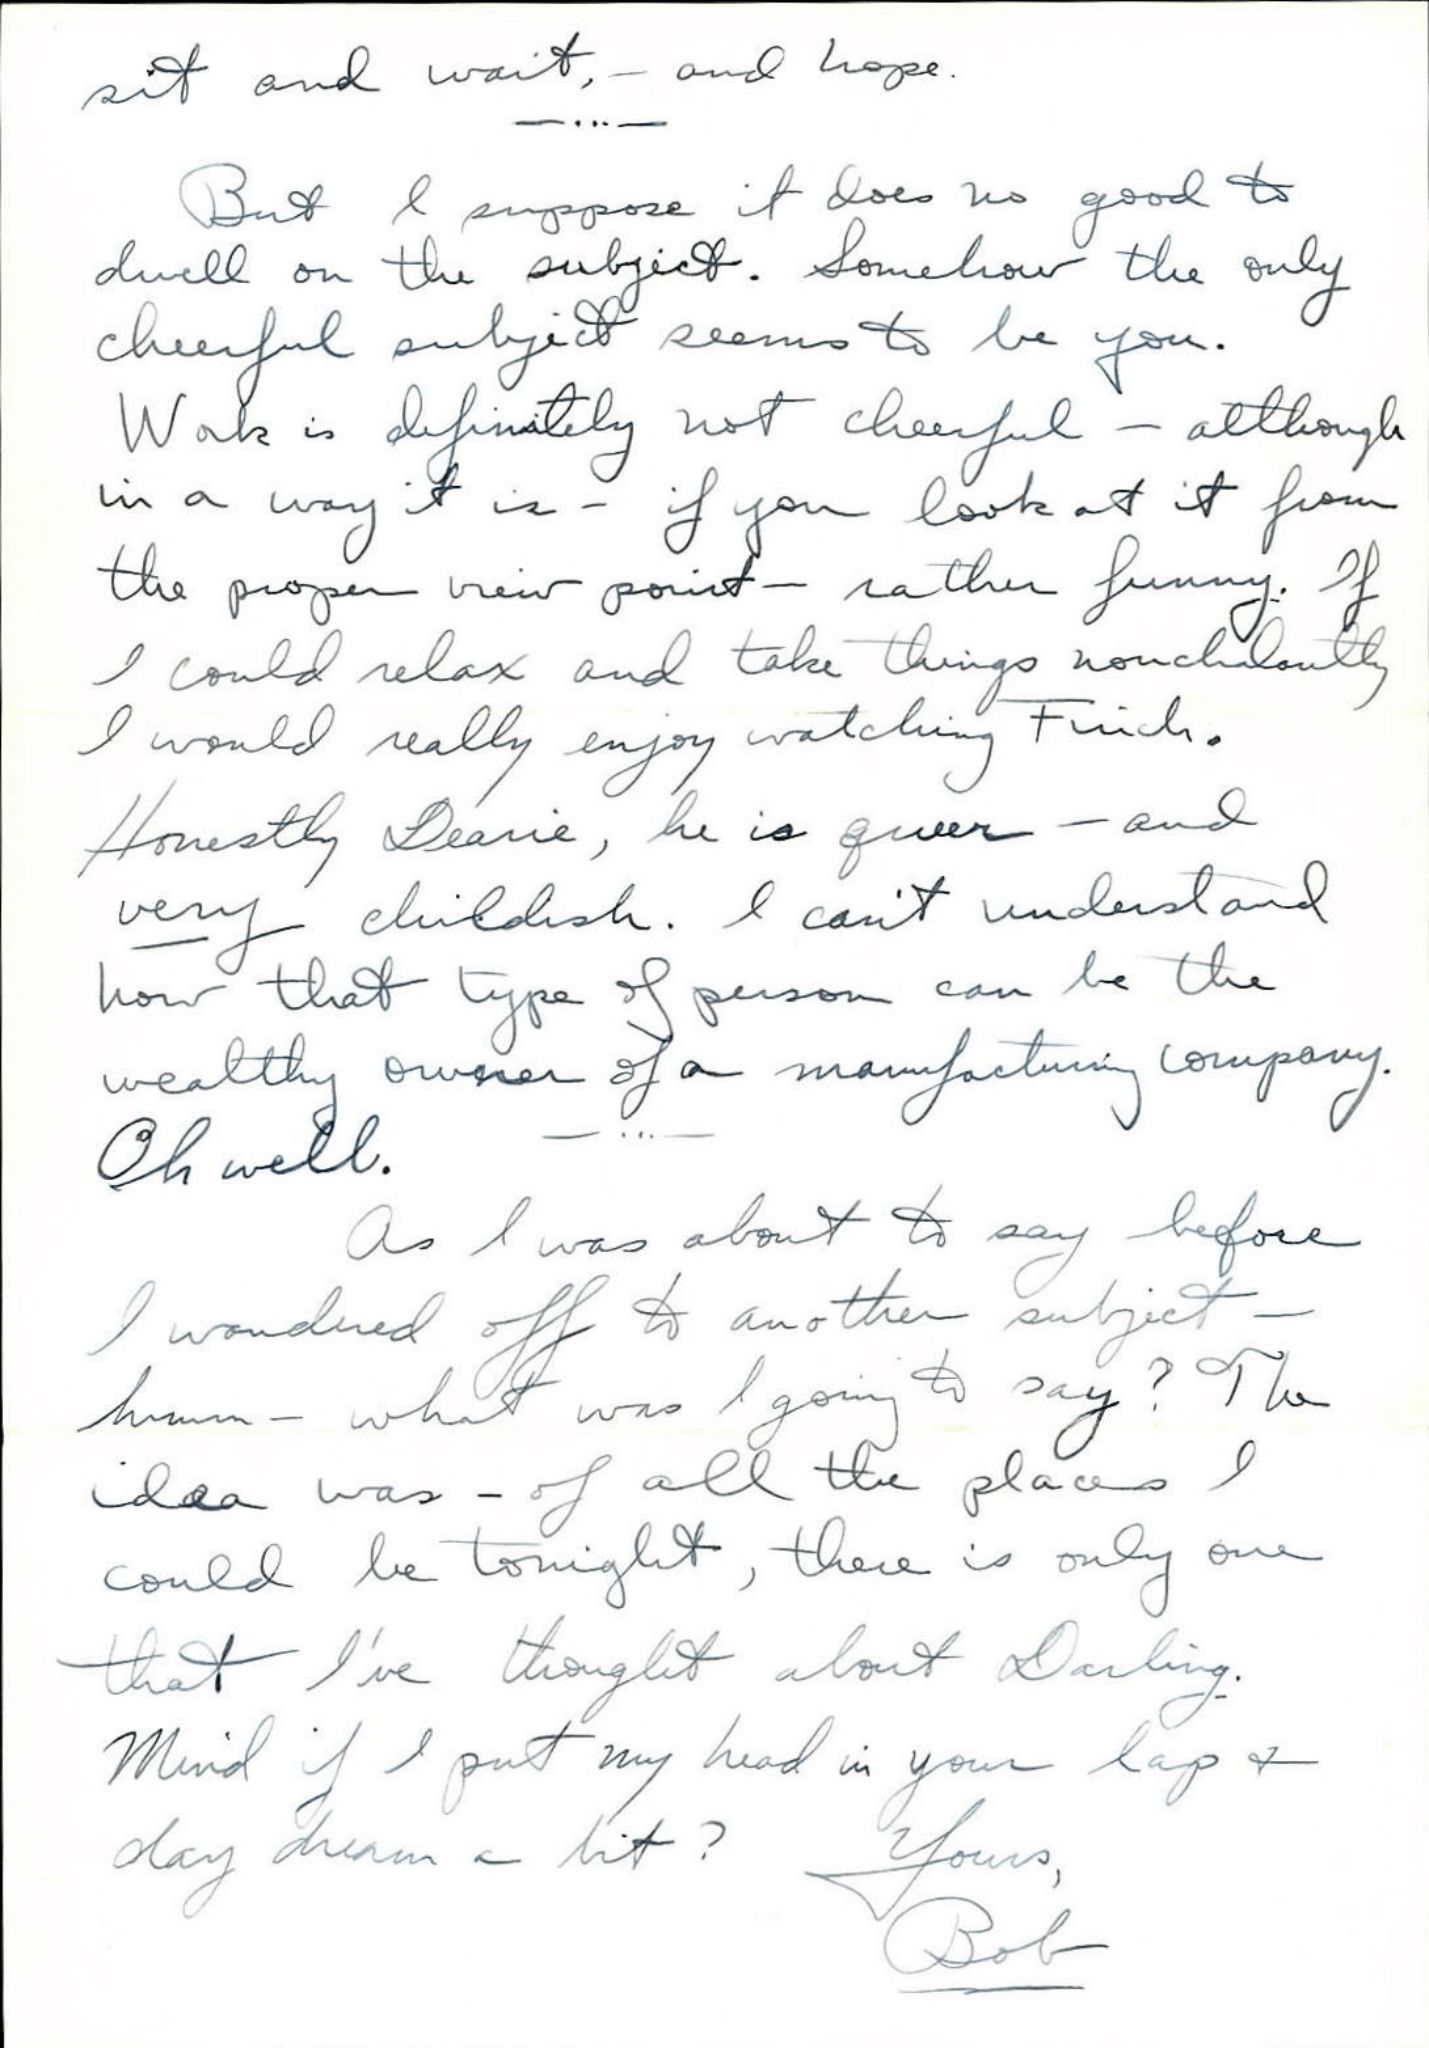 sit and wait, – and hope.
— ... —
But I suppose it does no good to
dwell on the subject. Somehow the only
cheerful subject seems to be you.
Work is definitely not cheerful – although
in a way it is – if you look at it from
the proper view point – rather funny. If
I could relax and take things nonchalantly
I would really enjoy watching Finch.
Honestly Dearie, he is queer – and
very childish. I can't understand
how that type of person can be the
wealthy owner of a manufacturing company.
Oh well. — ... —
As I was about to say before
I wandered off to another subject –
hmmm – what was I going to say? The
idea was – of all the places I
could be tonight, there is only one
that I've thought about Darling.
Mind if I put my head in your lap &
day dream a bit? Yours,
Bob